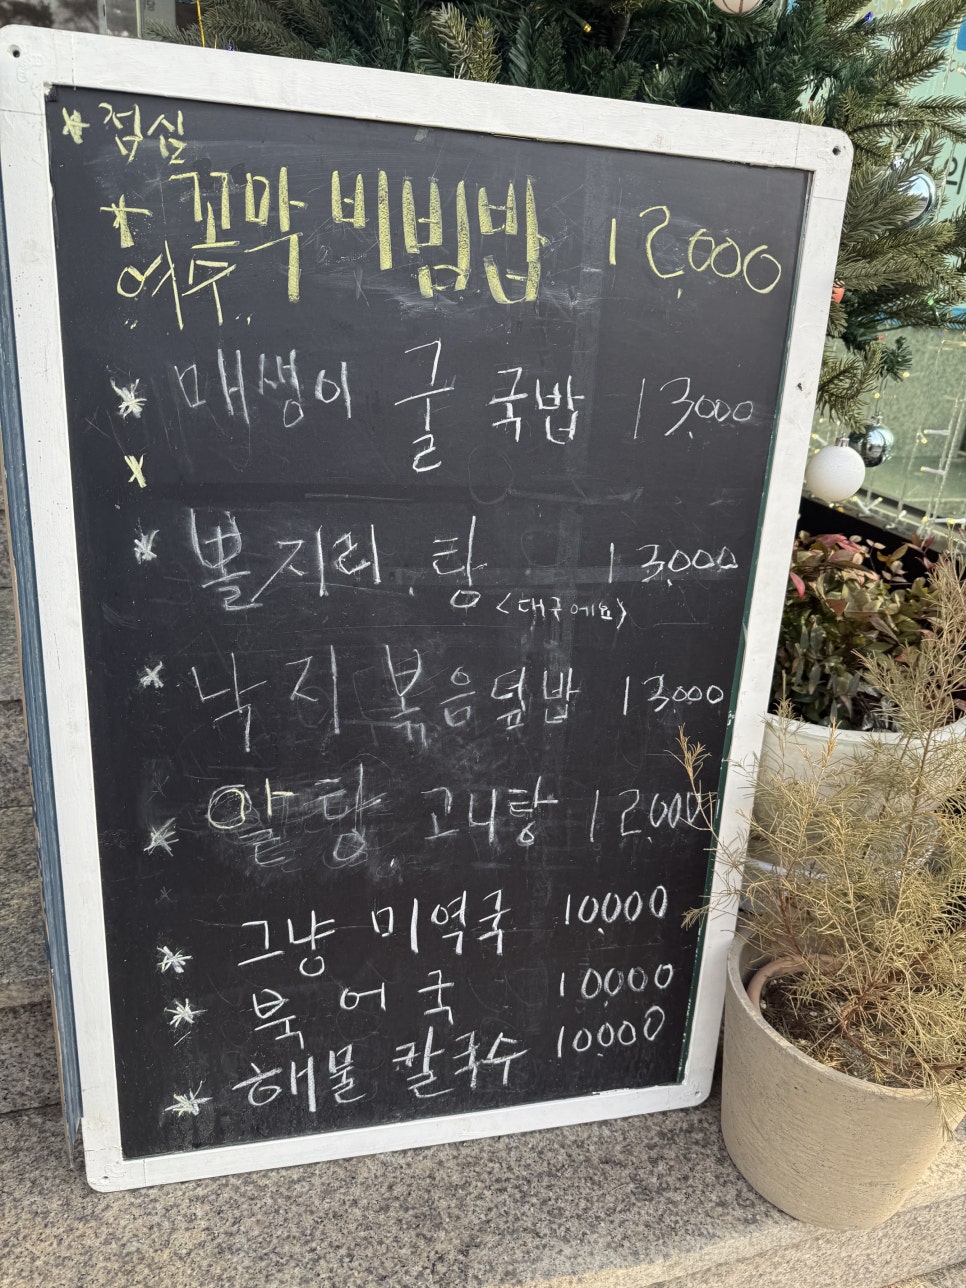 * 점심
* 꼬막 비빔밥 12,000
여수
* 매생이 굴 국밥 13,000
*
* 뽈지리.탕 13,000
<대구에요>
* 낙지 볶음덮밥 13,000
* 알탕. 고니탕 12,000
* 그냥 미역국 10,000
* 북어국 10,000
* 해물 칼국수 10,000